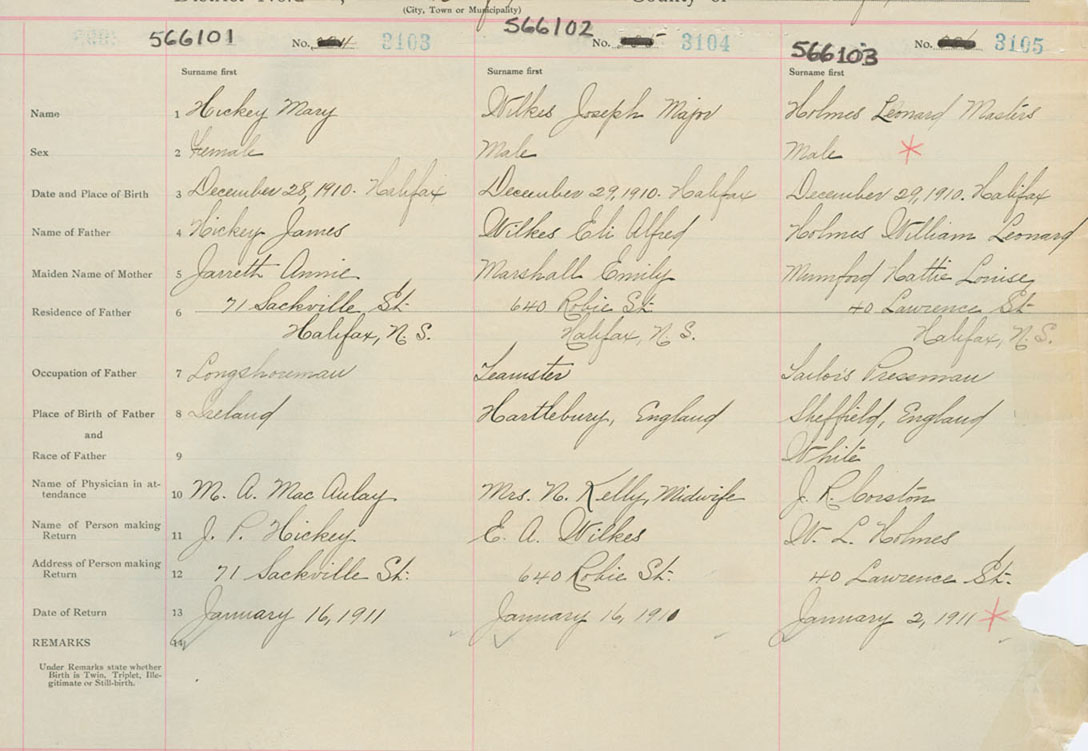 (City, Town or Municipality)
566101 No. 3103
566102 No. 3104
566103 No. 3105
Surname first Surname first Surname first
Name 1 Hickey Mary Wilkes Joseph Major Holmes Leonard Masters
Sex 2 Female Male Male *
Date and Place of Birth 3 December 28, 1910. Halifax December 29, 1910. Halifax December 29, 1910. Halifax
Name of Father 4 Hickey James Wilkes Eli Alfred Holmes William Leonard
Maiden Name of Mother 5 Jarreth Annie Marshall Emily Mumford Hattie Louise
Residence of Father 6 71 Sackville St. 640 Robie St. 40 Lawrence St.
Halifax, N. S. Halifax, N. S. Halifax, N. S.
Occupation of Father 7 Longshoreman Teamster Tailors Pressman
Place of Birth of Father 8 Ireland Hartlebury, England Sheffield, England
and
Race of Father 9 White
Name of Physician in at-
tendance 10 M. A. MacAulay Mrs. N. Kelly, Midwife J. R. Corston
Name of Person making
Return 11 J. P. Hickey E. A. Wilkes W. L. Holmes
Address of Person making
Return 12 71 Sackville St. 640 Robie St. 40 Lawrence St.
Date of Return 13 January 16, 1911 January 16, 1910 January 2, 1911 *
REMARKS 14
Under Remarks state whether
Birth is Twin, Triplet, Ille-
gitimate or Still-birth.